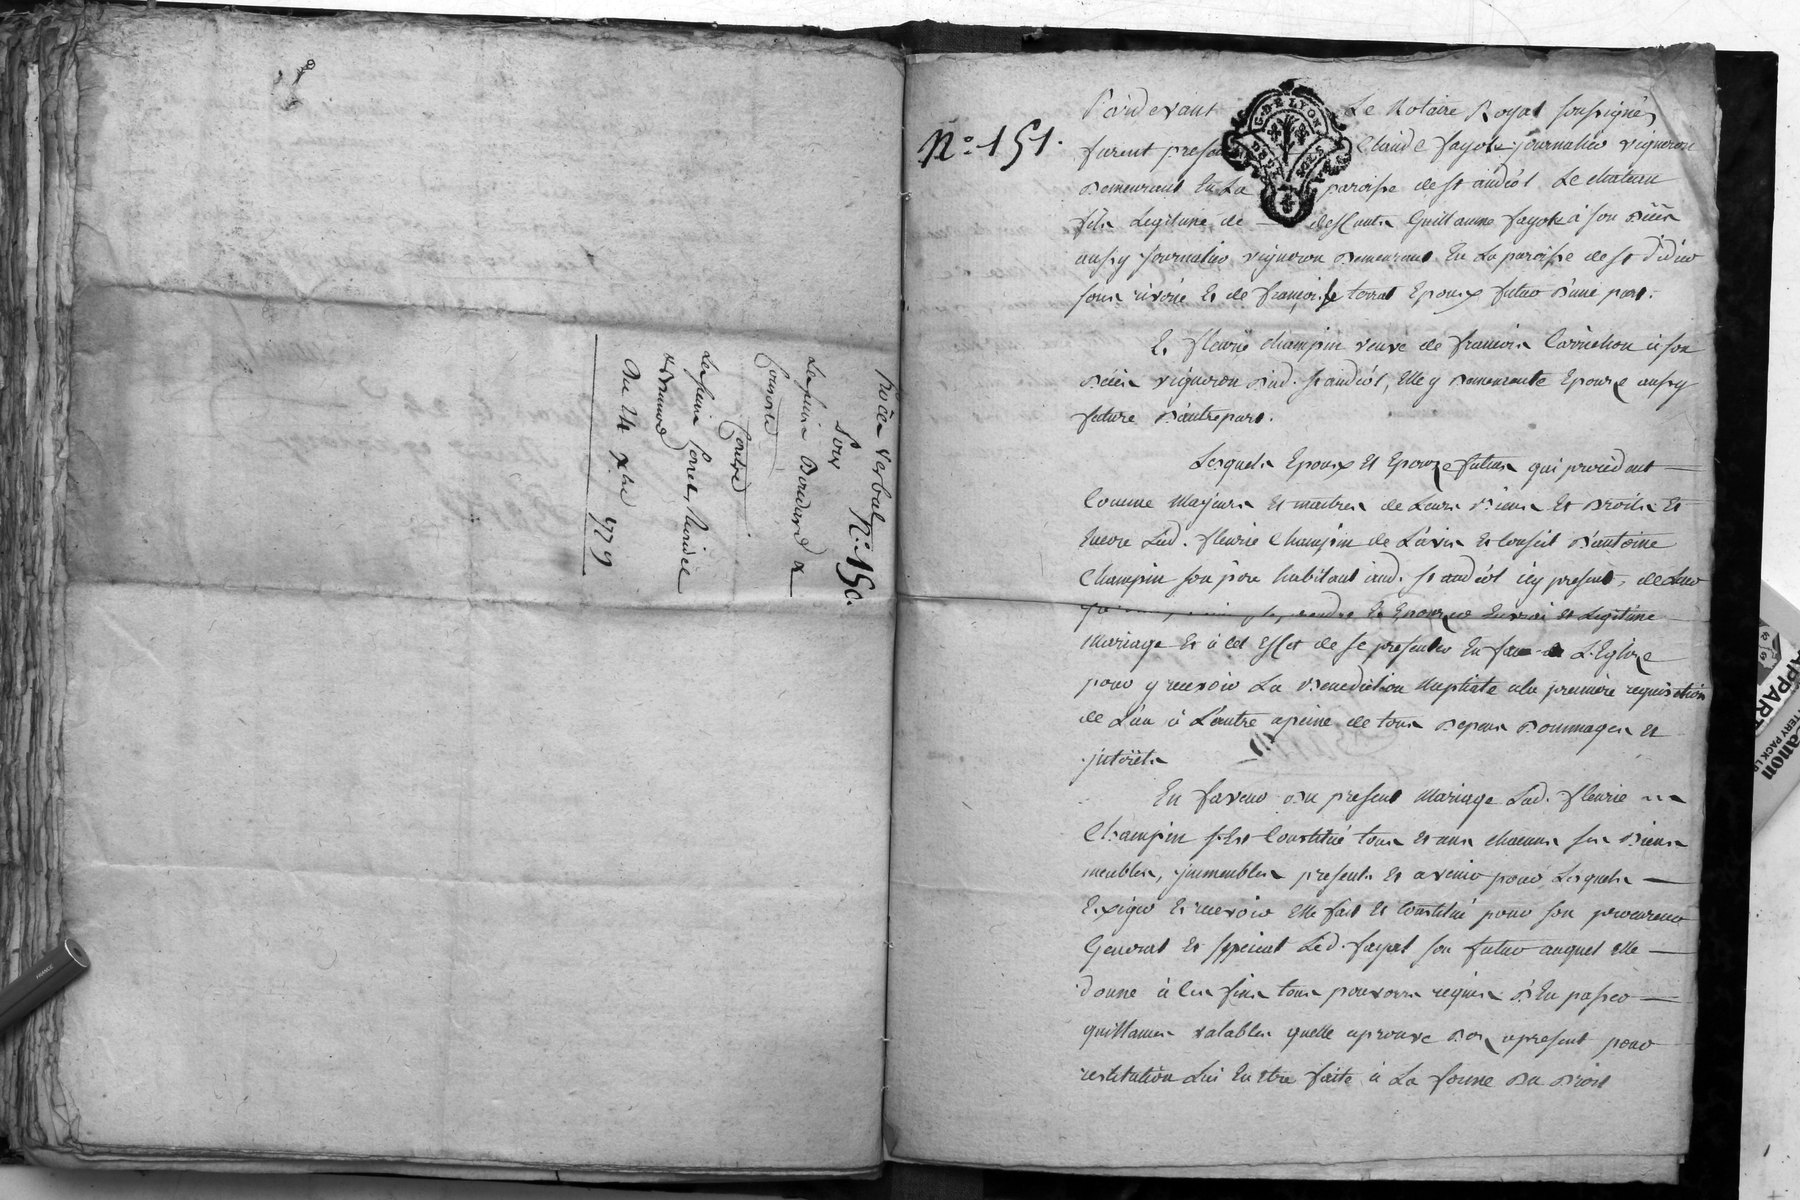 N.° 150.
Procès verbal
Pour
Le sieur Bouvard &
Consorts
Contre
Les sieurs
Du 24 xbre 1779
N.° 151.
G. DE LYON
Pardevant Le Notaire Royal soussigné,
furent presents Claude fayole journalier vigneron
Demeurant En La paroisse de st andéol Le chateau
fils Legitime de deffunts Guillaume fayole à son décès
aussy journalier vigneron Demeurant En La paroisse de st didier
sous riverie Et de françoise terrat Epoux futur D'une part.
Et fleurie champin veuve de françois Cornichon à son
décès vigneron dud. st andéol, Elle y Demeurante Epouze aussy
future D'autre part.
Lesquels Epoux Et Epouze futurs qui procedent
Comme Majeurs Et maitres de Leurs Biens Et Droits Et
Encore Lad. fleurie Champin de L'avis Et Conseil D'antoine
Champin son père habitant aud. st andéol icy present, de Leur
prendre Et Epouzer En vrai Et Legitime
Mariage Et à Cet Effet de se presenter En face de L'Eglize
pour y recevoir La Benediction Nuptiale a la première requisition
de L'un à L'autre apeine de tous Depens Dommages Et
jnterêts
En faveur Du present Mariage Lad. fleurie
Champin s'Est Constitué tous Et uns chacuns ses Biens
meubles, jmmeubles presents Et avenir pour Lesquels
Exiger Et recevoir Elle fait Et Constitué pour son procureur
General Et Special Led. fayol son futur auquel Elle
donne à Ces fins tous pouvoirs requis D'En passer
quittances valables quelle aprouve Des apresent pour
restitution Lui En Etre faite à La forme Du Droit
FRANCE
Canon